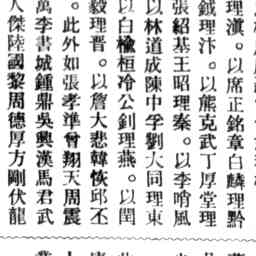 理滇。以席正銘章白麟理黔
鉞理汴。以熊克武丁厚堂理
張紹基王昭理秦。以李哨風
以林道成陳中孚劉大同理東
以白楡桓冷公釗理燕。以閻
毅理晋。以詹大悲韓恢邱丕
。此外如張孝準曾翔天周震
萬李書城鍾鼎吳興漢馬君武
人傑陸國黎周德厚方剛伏龍